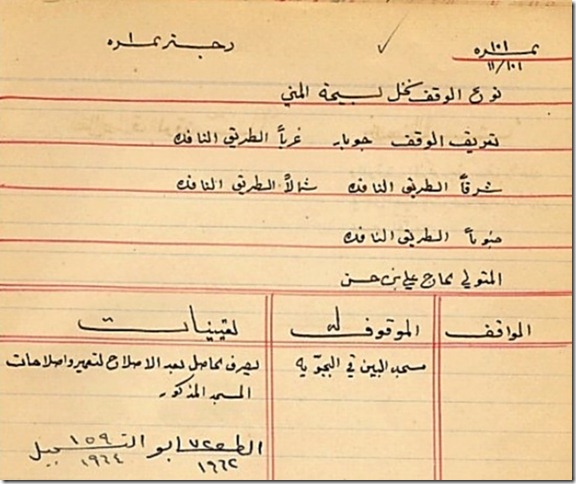 نمره ١٠١ دفتر نمره ١
١١/١٠١
نوع الوقف نخل المني
تعريف الوقف جوبار غرباً الطريق النافذ
شرقاً الطريق النافذ شمالاً الطريق النافذ
جنوباً الطريق النافذ
المتولي الحاج علي بن حسن
الواقف الموقوف له تعيينات
مسجد البين في
يصرف الحاصل بعد الاصلاح لتعمير واصلاحات
المسجد المذكور
التسجيل ١٥٩
١٩٦٢ ١٩٦٤